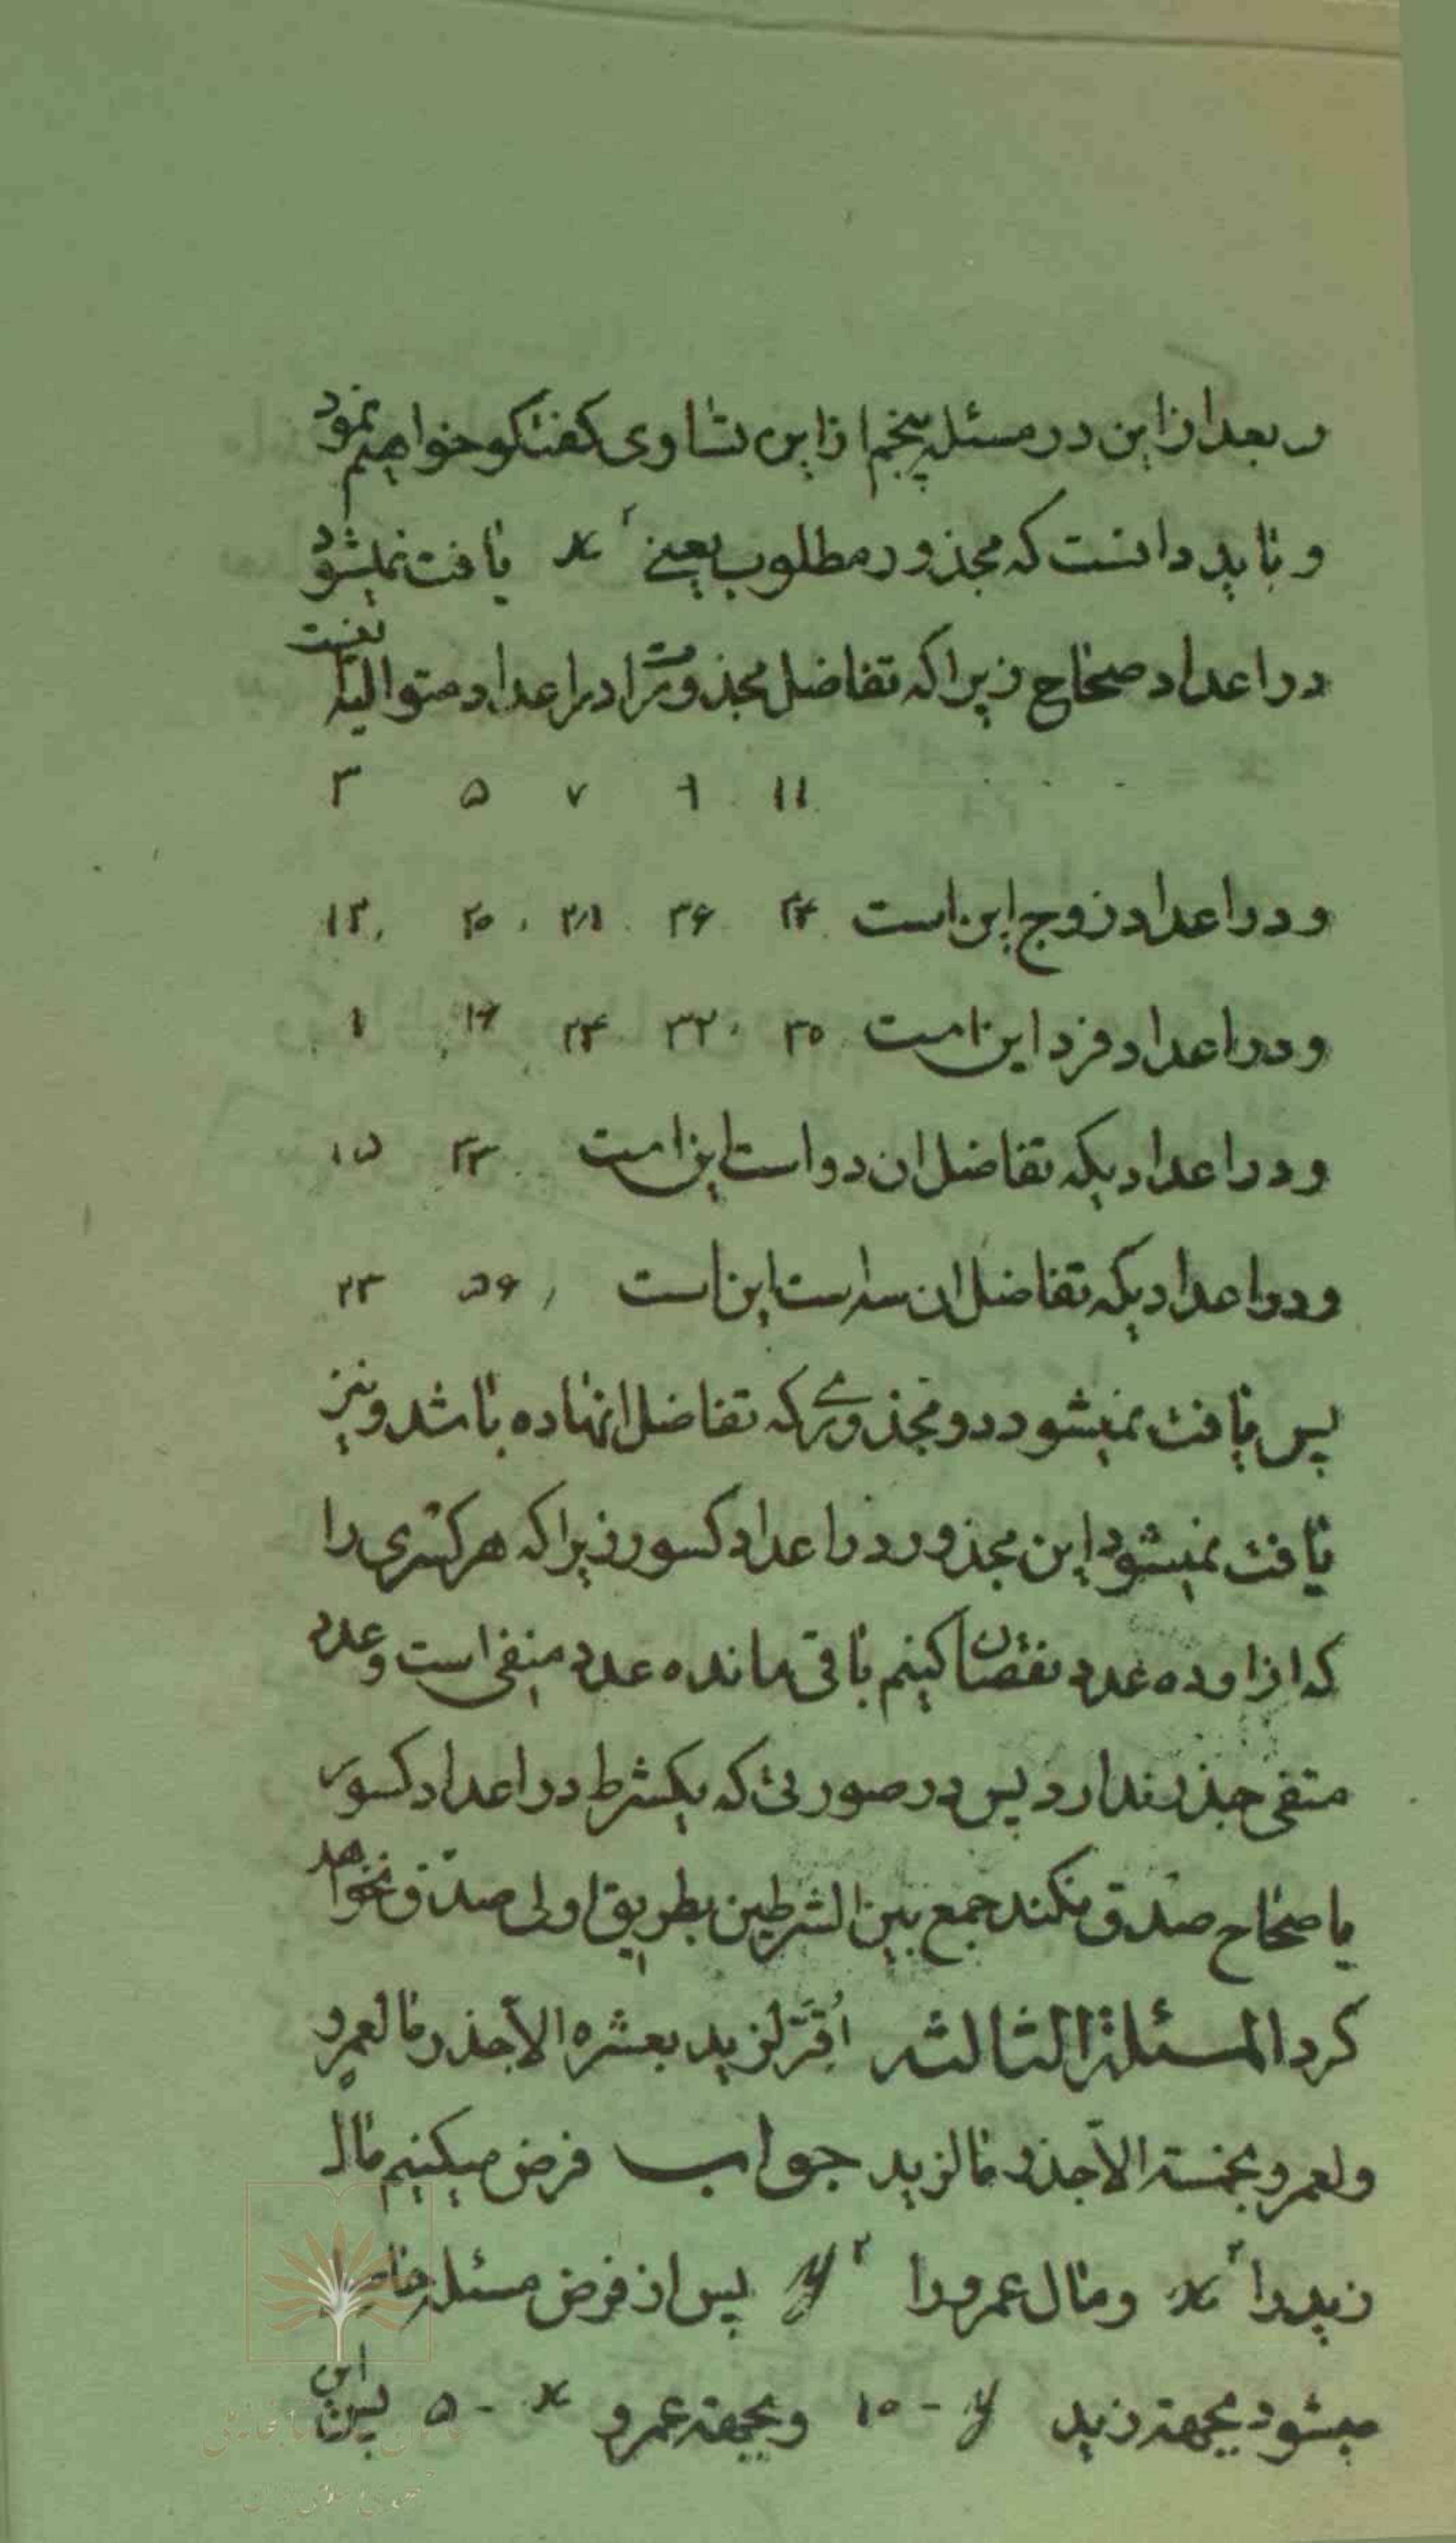 و بعد از این در مسئله پنجم از این تساوی کفتکو خواهیم نمود
و باید دانست که مجذور مطلوب یعنے x² یافت نمیشود
در اعداد صحاح زیرا که تفاضل مجذورات در اعداد متوالیه
۳ ۵ ۷ ۹ ۱۱
و در اعداد زوج این است ۴۴ ۳۶ ۲۸ ۲۰ ۱۲
و در اعداد فرد این است ۴۰ ۳۲ ۲۴ ۱۶ ۸
و در اعدادیکه تفاضل ان دو است این است
و در اعدادیکه تفاضل ان سه است این است
پس یافت نمیشود دو مجذوری که تفاضل انها ده باشد و نیز
یافت نمیشود این مجذور در اعداد کسور زیرا که هر کسری را
که از او ده عدد نقصان کنیم باقی مانده عدد منفی است و عدد
منفی جذر ندارد پس در صورتی که یکشرط در اعداد کسور
یا صحاح صدق نکند جمع بین الشرطین بطریق اولی صدق نخواهد
کرد المسئلة الثالثه اُقِرّ لزید بعشره الّا جذر ما لعمرو
و لعمرو بخمسة الّا جذر ما لزید جواب فرض میکنیم مال
زید را x² و مال عمرو را y² پس از فرض مسئله حاصل
میشود بجهة زید ۱۰ - y و بجهة عمرو ۵ - x پس این